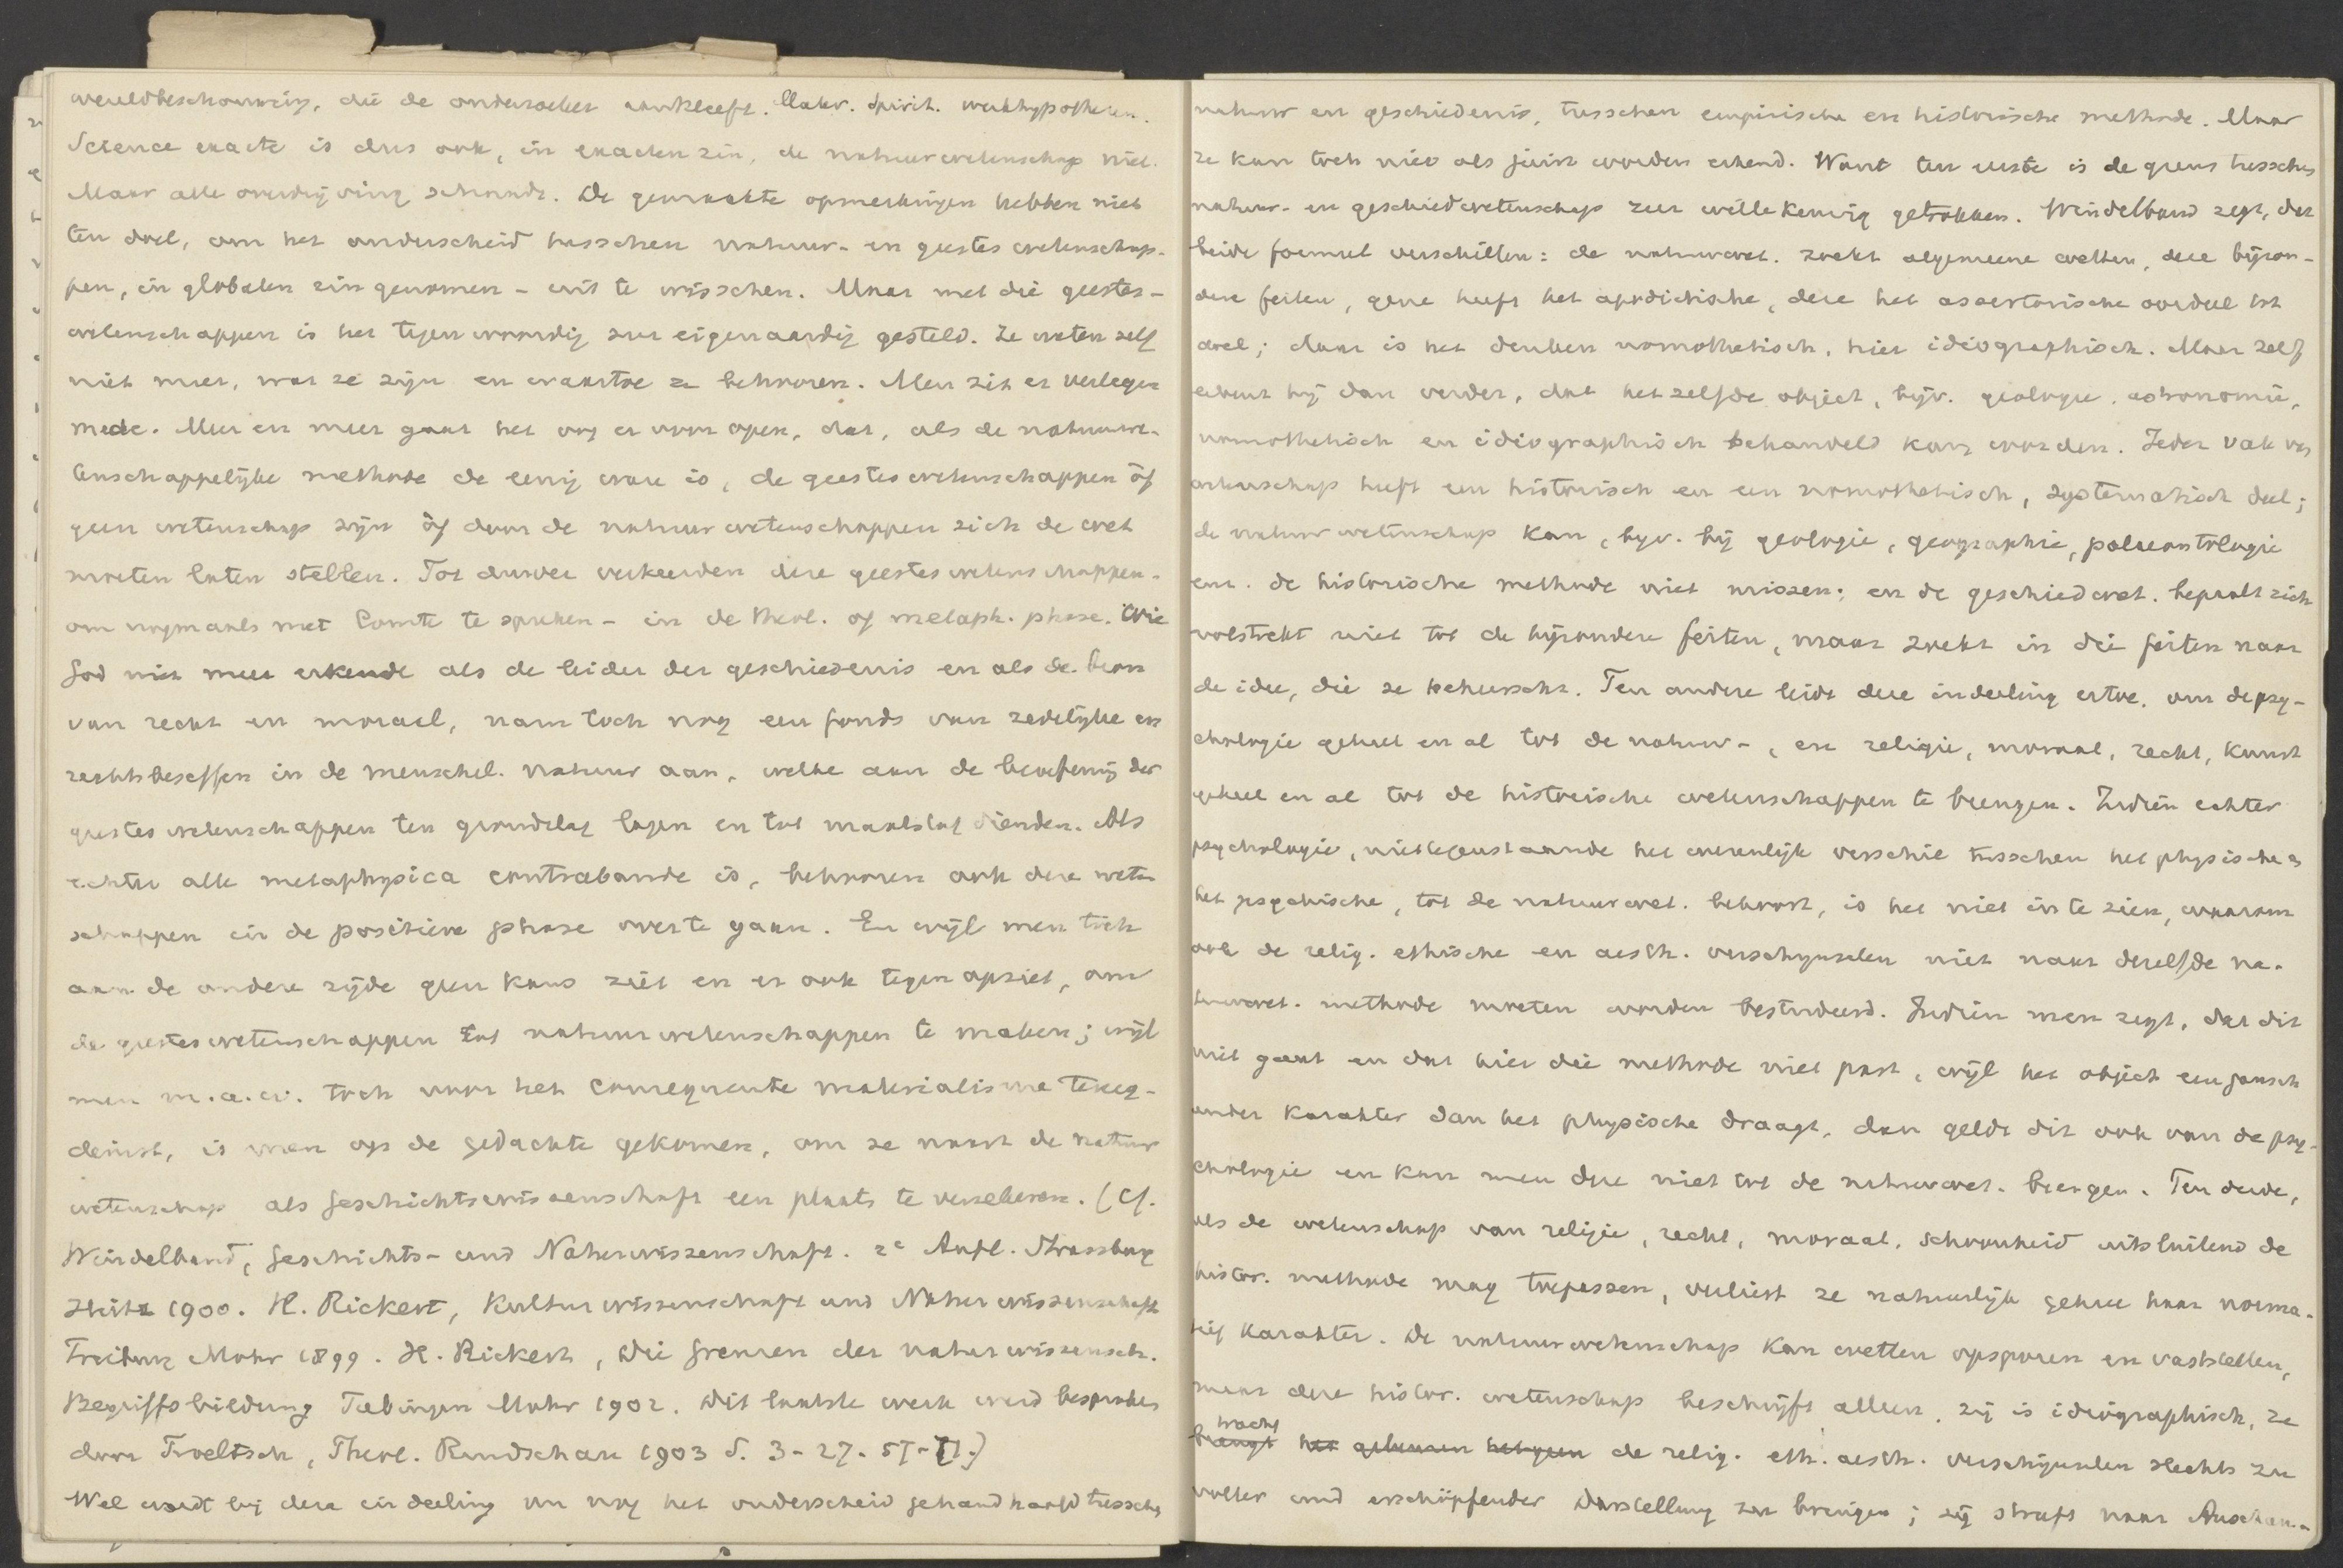 wereldbeschouwing, die de onderzoeker aankleeft. Mater. Spirit. werkhypothesen.
Science exacte is dus ook, in exacten zin, de natuurwetenschap niet.
Maar alle overdrijving schaadt. De gemaakte opmerkingen hebben niet
ten doel, om het onderscheid tusschen natuur- en geesteswetenschap-
pen, in globalen zin genomen - uit te wisschen. Maar met die geestes-
wetenschappen is het tegenwoordig zeer eigenaardig gesteld. Ze weten zelf
niet meer, wat ze zijn en waartoe ze behooren. Men zit er verlegen
mede. Meer en meer gaat het oog er voor open, dat, als de natuurwe-
tenschappelijke methode de eenig ware is, de geesteswetenschappen òf
geen wetenschap zijn òf door de natuurwetenschappen zich de wet
moeten laten stellen. Tot dusver verkeerden deze geesteswetenschappen -
om nogmaals met Comte te spreken - in de theol. of metaph. phase. Wie
God niet meer erkende als de leider der geschiedenis en als de bron
van recht en moraal, nam toch nog een fonds van zedelijke en
rechtsbeseffen in de menschel. natuur aan, welke aan de beoefening der
geesteswetenschappen ten grondslag lagen en tot maatstaf dienden. Als
echter alle metaphysica contrabande is, behooren ook deze weten
schappen in de positieve phase over te gaan. En wijl men toch
aan de andere zijde geen kans ziet en er ook tegen opziet, om
de geesteswetenschappen tot natuurwetenschappen te maken; wijl
men m.a.w. toch voor het consequente materialisme terug-
deinst, is men op de gedachte gekomen, om ze naast de natuur
wetenschap als Geschichtswissenschaft een plaats te verzekeren. (Cf.
Windelband, Geschichts- und Naturwissenschaft. 2e Aufl. Strassburg
Heitz 1900. H. Rickert, Kulturwissenschaft und Naturwissenschaft
Freiburg Mohr 1899. H. Rickert, Die Grenzen der naturwissensch.
Begriffsbildung Tübingen Mohr 1902. Dit laatste werk werd besproken
door Troeltsch, Theol. Rundschau 1903 S. 3-27. 57-71.)
Wel wordt bij deze indeeling nu nog het onderscheid gehandhaafd tusschen
natuur en geschiedenis, tusschen empirische en historische methode. Maar
ze kan toch niet als juist worden erkend. Want ten eerste is de grens tusschen
natuur- en geschiedwetenschap zeer willekeurig getrokken. Windelband zegt, dat
beide formeel verschillen: de natuurwet. zoekt algemeene wetten, deze bijzon-
dere feiten, gene heeft het apodictische, deze het assertorische oordeel tot
doel; daar is het denken nomothetisch, hier idiographisch. Maar zelf
erkent hij dan verder, dat hetzelfde object, bijv. geologie, astronomie,
nomothetisch en idiographisch behandeld kan worden. Ieder vak van
wetenschap heeft een historisch en een nomothetisch, systematisch deel;
de natuurwetenschap kan, bijv. bij geologie, geographie, palaeontologie
enz. de historische methode niet missen; en de geschiedwet. bepaalt zich
volstrekt niet tot de bijzondere feiten, maar zoekt in die feiten naar
de idee, die ze beheerscht. Ten andere leidt deze indeeling ertoe, om de psy-
chologie geheel en al tot de natuur-, en religie, moraal, recht, kunst
geheel en al tot de historische wetenschappen te brengen. Indien echter
psychologie, niettegenstaande het wezenlijk verschil tusschen het physische en
het psychische, tot de natuurwet. behoort, is het niet in te zien, waarom
ook de relig. ethische en aesth. verschijnselen niet naar dezelfde na-
tuurwet. methode moeten worden bestudeerd. Indien men zegt, dat dit
niet gaat en dat hier die methode niet past, wijl het object een gansch
ander karakter dan het physische draagt, dan geldt dit ook van de psy-
chologie en kan men deze niet tot de natuurwet. brengen. Ten derde,
als de wetenschap van religie, recht, moraal, schoonheid uitsluitend de
histor. methode mag toepassen, verliest ze natuurlijk geheel haar norma-
tief karakter. De natuurwetenschap kan wetten opsporen en vaststellen,
maar deze histor. wetenschap beschrijft alleen, zij is idiographisch, ze
tracht
brengt het gebeuren hetgeen de relig. eth. aesth. verschijnselen slechts zu
voller und erschöpfender Darstellung zu bringen; zij streeft naar Anschau-